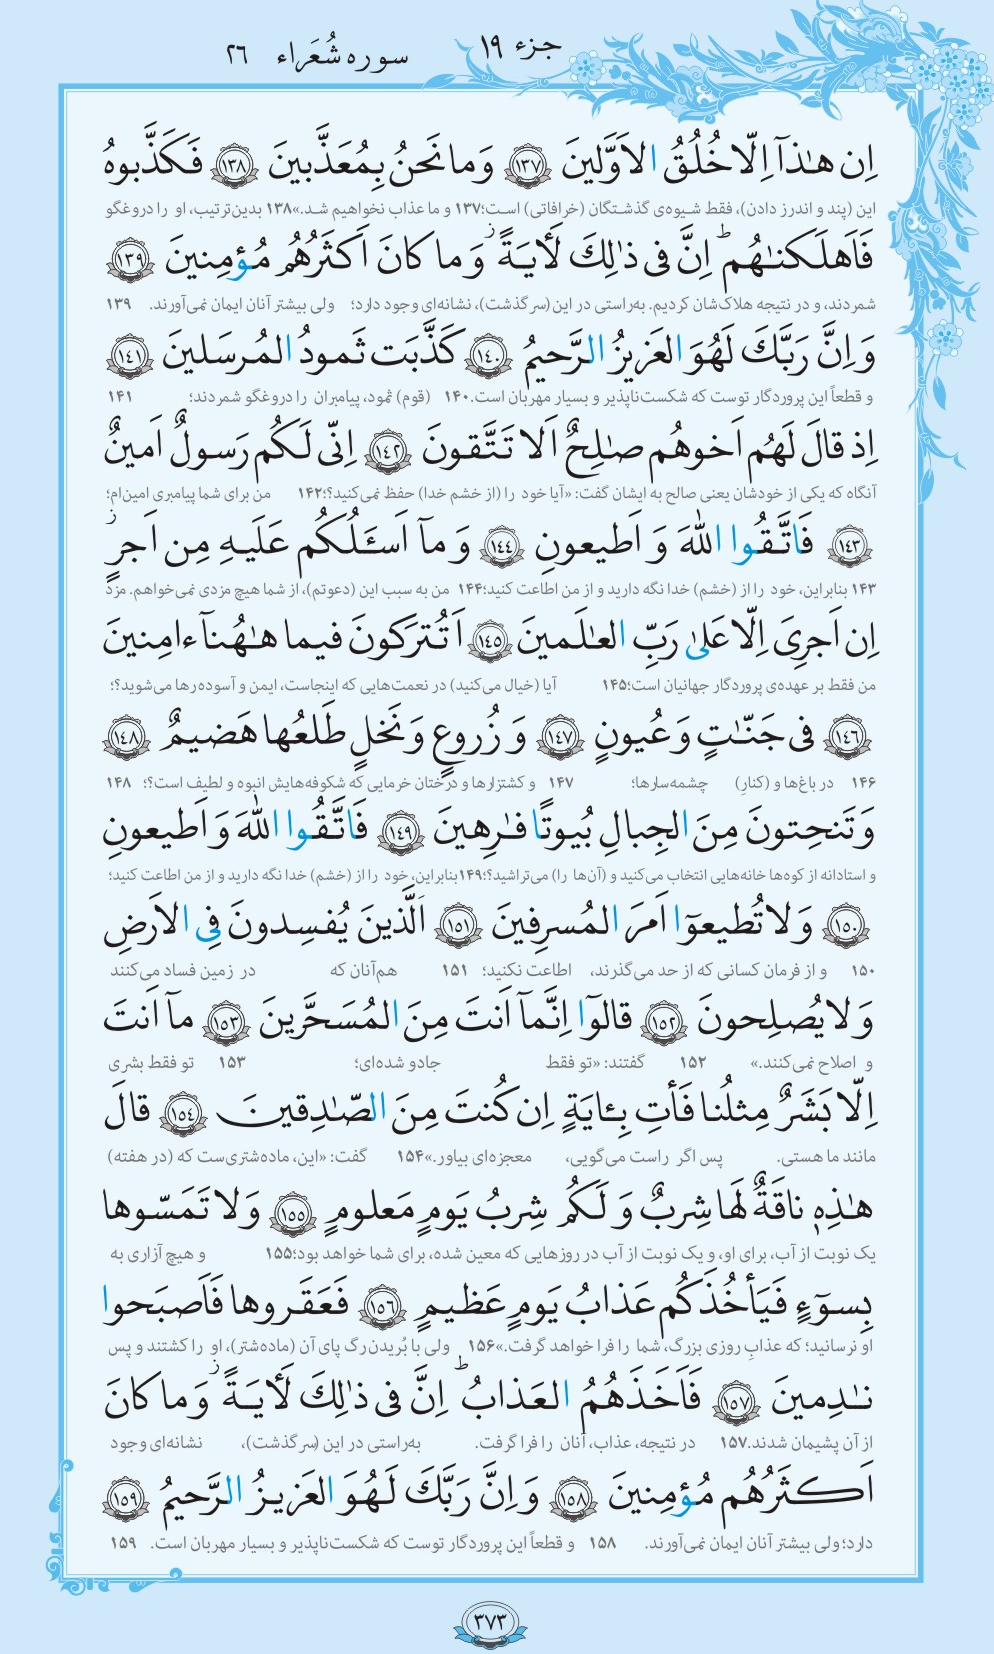 جزء ۱۹
سوره شُعَراء ۲۶
اِن هـٰذآ اِلّا خُلُقُ الاَوَّلینَ ﴿١٣٧﴾ وَ ما نَحنُ بِمُعَذَّبینَ ﴿١٣٨﴾ فَکَذَّبوهُ
این (پند و اندرز دادن)، فقط شیوه‌ی گذشتگان (خرافاتی) است؛۱۳۷ و ما عذاب نخواهیم شد.»۱۳۸ بدین‌ترتیب، او را دروغگو
فَاَهلَکنـٰهُم ؕ اِنَّ فی ذٰلِکَ لَـأٓیَـةً ۖز وَ ما کانَ اَکثَرُهُم مُؤمِنینَ ﴿١٣٩﴾
شمردند، و در نتیجه هلاک‌شان کردیم. به‌راستی در این(سرگذشت)، نشانه‌ای وجود دارد؛ ولی بیشتر آنان ایمان نمی‌آورند. ۱۳۹
وَ اِنَّ رَبَّکَ لَهُوَ العَزیزُ الرَّحیمُ ﴿١٤٠﴾ کَذَّبَت ثَمودُ المُرسَلینَ ﴿١٤١﴾
و قطعاً این پروردگار توست که شکست‌ناپذیر و بسیار مهربان است.۱۴۰ (قوم) ثمود، پیامبران را دروغگو شمردند؛ ۱۴۱
اِذ قالَ لَهُم اَخوهُم صـٰلِحٌ اَلا تَتَّقونَ ﴿١٤٢﴾ اِنّی لَکُم رَسولٌ اَمینٌ
آنگاه که یکی از خودشان یعنی صالح به ایشان گفت: «آیا خود را (از خشم خدا) حفظ نمی‌کنید؟؛۱۴۲ من برای شما پیامبری امین‌ام؛
﴿١٤٣﴾ فَاتَّقُوا اللهَ وَ اَطیعونِ ﴿١٤٤﴾ وَ مآ اَسـَٔلُکُم عَلَیهِ مِن اَجرٍ ۖز
۱۴۳ بنابراین، خود را از (خشم) خدا نگه دارید و از من اطاعت کنید؛۱۴۴ من به سبب این (دعوتم)، از شما هیچ مزدی نمی‌خواهم. مزد
اِن اَجرِیَ اِلّا عَلیٰ رَبِّ العـٰلَمینَ ﴿١٤٥﴾ اَتُترَکونَ فیما هـٰهُنآ ءامِنینَ
من فقط بر عهده‌ی پروردگار جهانیان است؛۱۴۵ آیا (خیال می‌کنید) در نعمت‌هایی که اینجاست، ایمن و آسوده رها می‌شوید؟؛
﴿١٤٦﴾ فی جَنّـٰتٍ وَ عُیونٍ ﴿١٤٧﴾ وَ زُروعٍ وَ نَخلٍ طَلعُها هَضیمٌ ﴿١٤٨﴾
۱۴۶ در باغ‌ها و (کنارِ) چشمه‌سارها؛ ۱۴۷ و کشتزارها و درختان خرمایی که شکوفه‌هایش انبوه و لطیف است؟؛ ۱۴۸
وَ تَنحِتونَ مِنَ الجِبالِ بُیوتًا فـٰرِهینَ ﴿١٤٩﴾ فَاتَّقُوا اللهَ وَ اَطیعونِ
و استادانه از کوه‌ها خانه‌هایی انتخاب می‌کنید و (آن‌ها را) می‌تراشید؟؛۱۴۹بنابراین، خود را از (خشم) خدا نگه دارید و از من اطاعت کنید؛
﴿١٥٠﴾ وَ لا تُطیعوٓا اَمرَ المُسرِفینَ ﴿١٥١﴾ اَلَّذینَ یُفسِدونَ فِی الاَرضِ
۱۵۰ و از فرمان کسانی که از حد می‌گذرند، اطاعت نکنید؛ ۱۵۱ هم‌آنان که در زمین فساد می‌کنند
وَ لا یُصلِحونَ ﴿١٥٢﴾ قالوٓا اِنَّمآ اَنتَ مِنَ المُسَحَّرینَ ﴿١٥٣﴾ مآ اَنتَ
و اصلاح نمی‌کنند.» ۱۵۲ گفتند: «تو فقط جادو شده‌ای؛ ۱۵۳ تو فقط بشری
اِلّا بَشَرٌ مِثلُنا فَأتِ بِـٔایَةٍ اِن کُنتَ مِنَ الصّـٰدِقینَ ﴿١٥٤﴾ قالَ
مانند ما هستی. پس اگر راست می‌گویی، معجزه‌ای بیاور.»۱۵۴ گفت: «این، ماده‌شتری‌ست که (در هفته)
هـٰذِهٖ ناقَةٌ لَها شِربٌ وَ لَکُم شِربُ یَومٍ مَعلومٍ ﴿١٥٥﴾ وَ لا تَمَسّوها
یک نوبت از آب، برای او، و یک نوبت از آب در روزهایی که معین شده، برای شما خواهد بود؛۱۵۵ و هیچ آزاری به
بِسوٓءٍ فَیَأخُذَکُم عَذابُ یَومٍ عَظیمٍ ﴿١٥٦﴾ فَعَقَروها فَاَصبَحوا
او نرسانید؛ که عذابِ روزی بزرگ، شما را فرا خواهد گرفت.»۱۵۶ ولی با بُریدن رگ پای آن (ماده‌شتر)، او را کشتند و پس
نـٰدِمینَ ﴿١٥٧﴾ فَاَخَذَهُمُ العَذابُ ؕ اِنَّ فی ذٰلِکَ لَـأٓیَـةً ۖز وَ ما کانَ
از آن پشیمان شدند.۱۵۷ در نتیجه، عذاب، آنان را فرا گرفت. به‌راستی در این (سرگذشت)، نشانه‌ای وجود
اَکثَرُهُم مُؤمِنینَ ﴿١٥٨﴾ وَ اِنَّ رَبَّکَ لَهُوَ العَزیزُ الرَّحیمُ ﴿١٥٩﴾
دارد؛ ولی بیشتر آنان ایمان نمی‌آورند. ۱۵۸ و قطعاً این پروردگار توست که شکست‌ناپذیر و بسیار مهربان است. ۱۵۹
۳۷۳